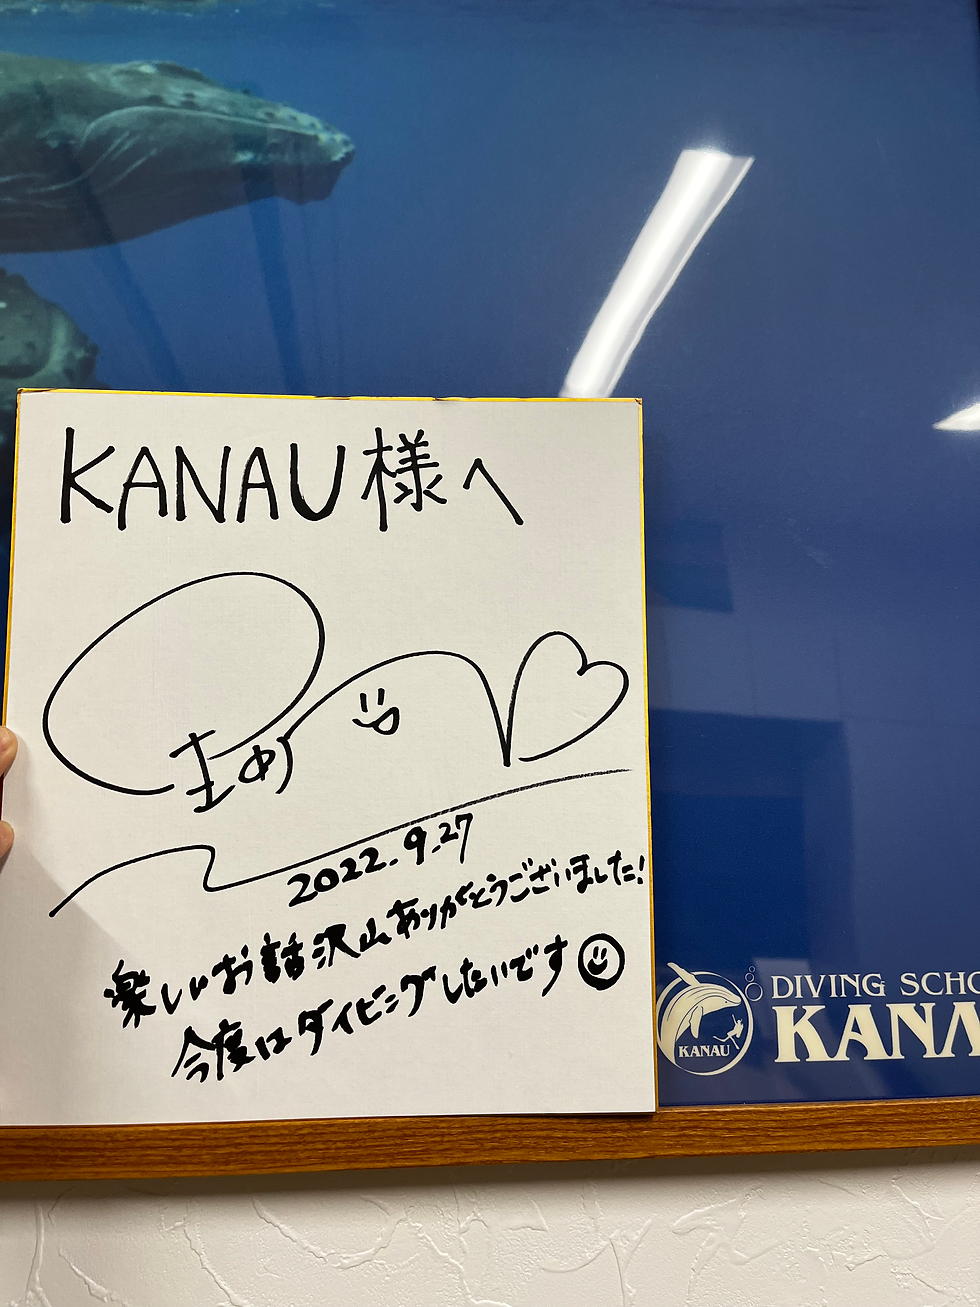 KANAU様へ
2022.9.27
楽しいお話沢山ありがとうございました!
今度はダイビングしたいです
KANAU
DIVING SCHO
KANA